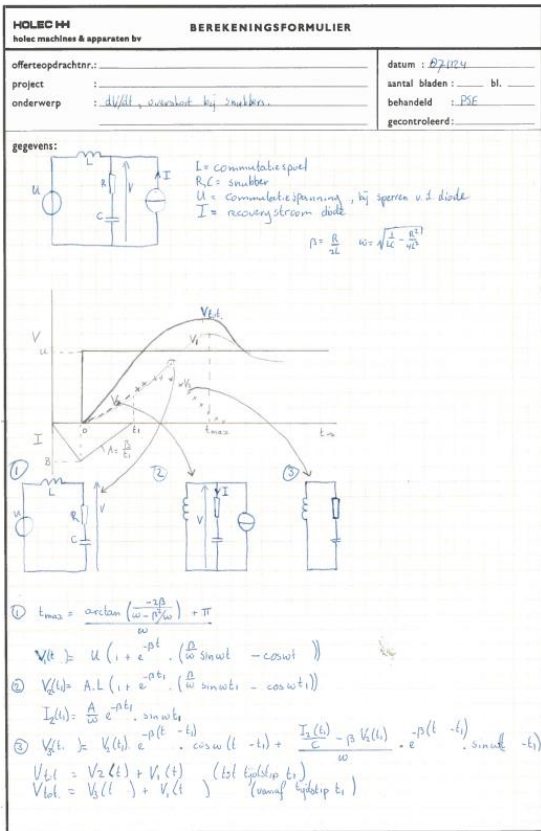 HOLEC HH
holec machines & apparaten bv
BEREKENINGSFORMULIER
offerteopdrachtnr.:
project :
onderwerp : dV/dt, overshoot bij snubbers.
datum : 071124
aantal bladen : bl.
behandeld : PSE
gecontroleerd:
gegevens:
L
U
R
C
V
I
L = commutatiespoel
R,C = snubber
U = commutatiespanning, bij sperren v.d diode
I = recoverystroom diode
β = R/2L ω = √(1/LC - R²/4L²)
Vtot.
V
U
V1
V2
V3
0
t1
tmax
t →
I
B
A = B/t1
① ② ③
L
U
R
C
V
V
I
① tmax = (arctan (-2β/(ω - β²/ω)) + π)/ω
V1(t) = U (1 + e^-βt . (β/ω sinωt - cosωt))
② V2(t1) = A.L (1 + e^-βt1 . (β/ω sinωt1 - cosωt1))
I2(t1) = A/ω e^-βt1 . sinωt1
③ V3(t) = V2(t1) . e^-β(t - t1) . cosω(t - t1) + (I2(t1)/C - β V2(t1))/ω . e^-β(t - t1) . sinω(t - t1)
Vtot = V2(t) + V1(t) (tot tijdstip t1)
Vtot. = V3(t) + V1(t) (vanaf tijdstip t1)